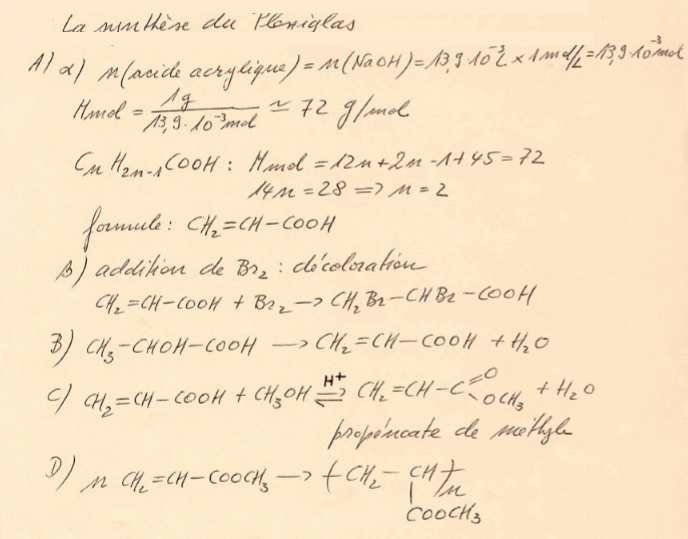 La synthèse du Plexiglas
A) α) n(acide acrylique) = n(NaOH) = 13,9·10⁻³L × 1 mol/L = 13,9·10⁻³mol
Mmol = 1g / 13,9·10⁻³mol ≃ 72 g/mol
CnH2n-1COOH : Mmol = 12n + 2n - 1 + 45 = 72
14n = 28 => n = 2
formule : CH₂=CH-COOH
β) addition de Br₂ : décoloration
CH₂=CH-COOH + Br₂ → CH₂Br-CHBr-COOH
B) CH₃-CHOH-COOH → CH₂=CH-COOH + H₂O
C) CH₂=CH-COOH + CH₃OH ⇌ H+ CH₂=CH-C=O OCH₃ + H₂O
propénoate de méthyle
D) n CH₂=CH-COOCH₃ → (CH₂-CH)n
COOCH₃